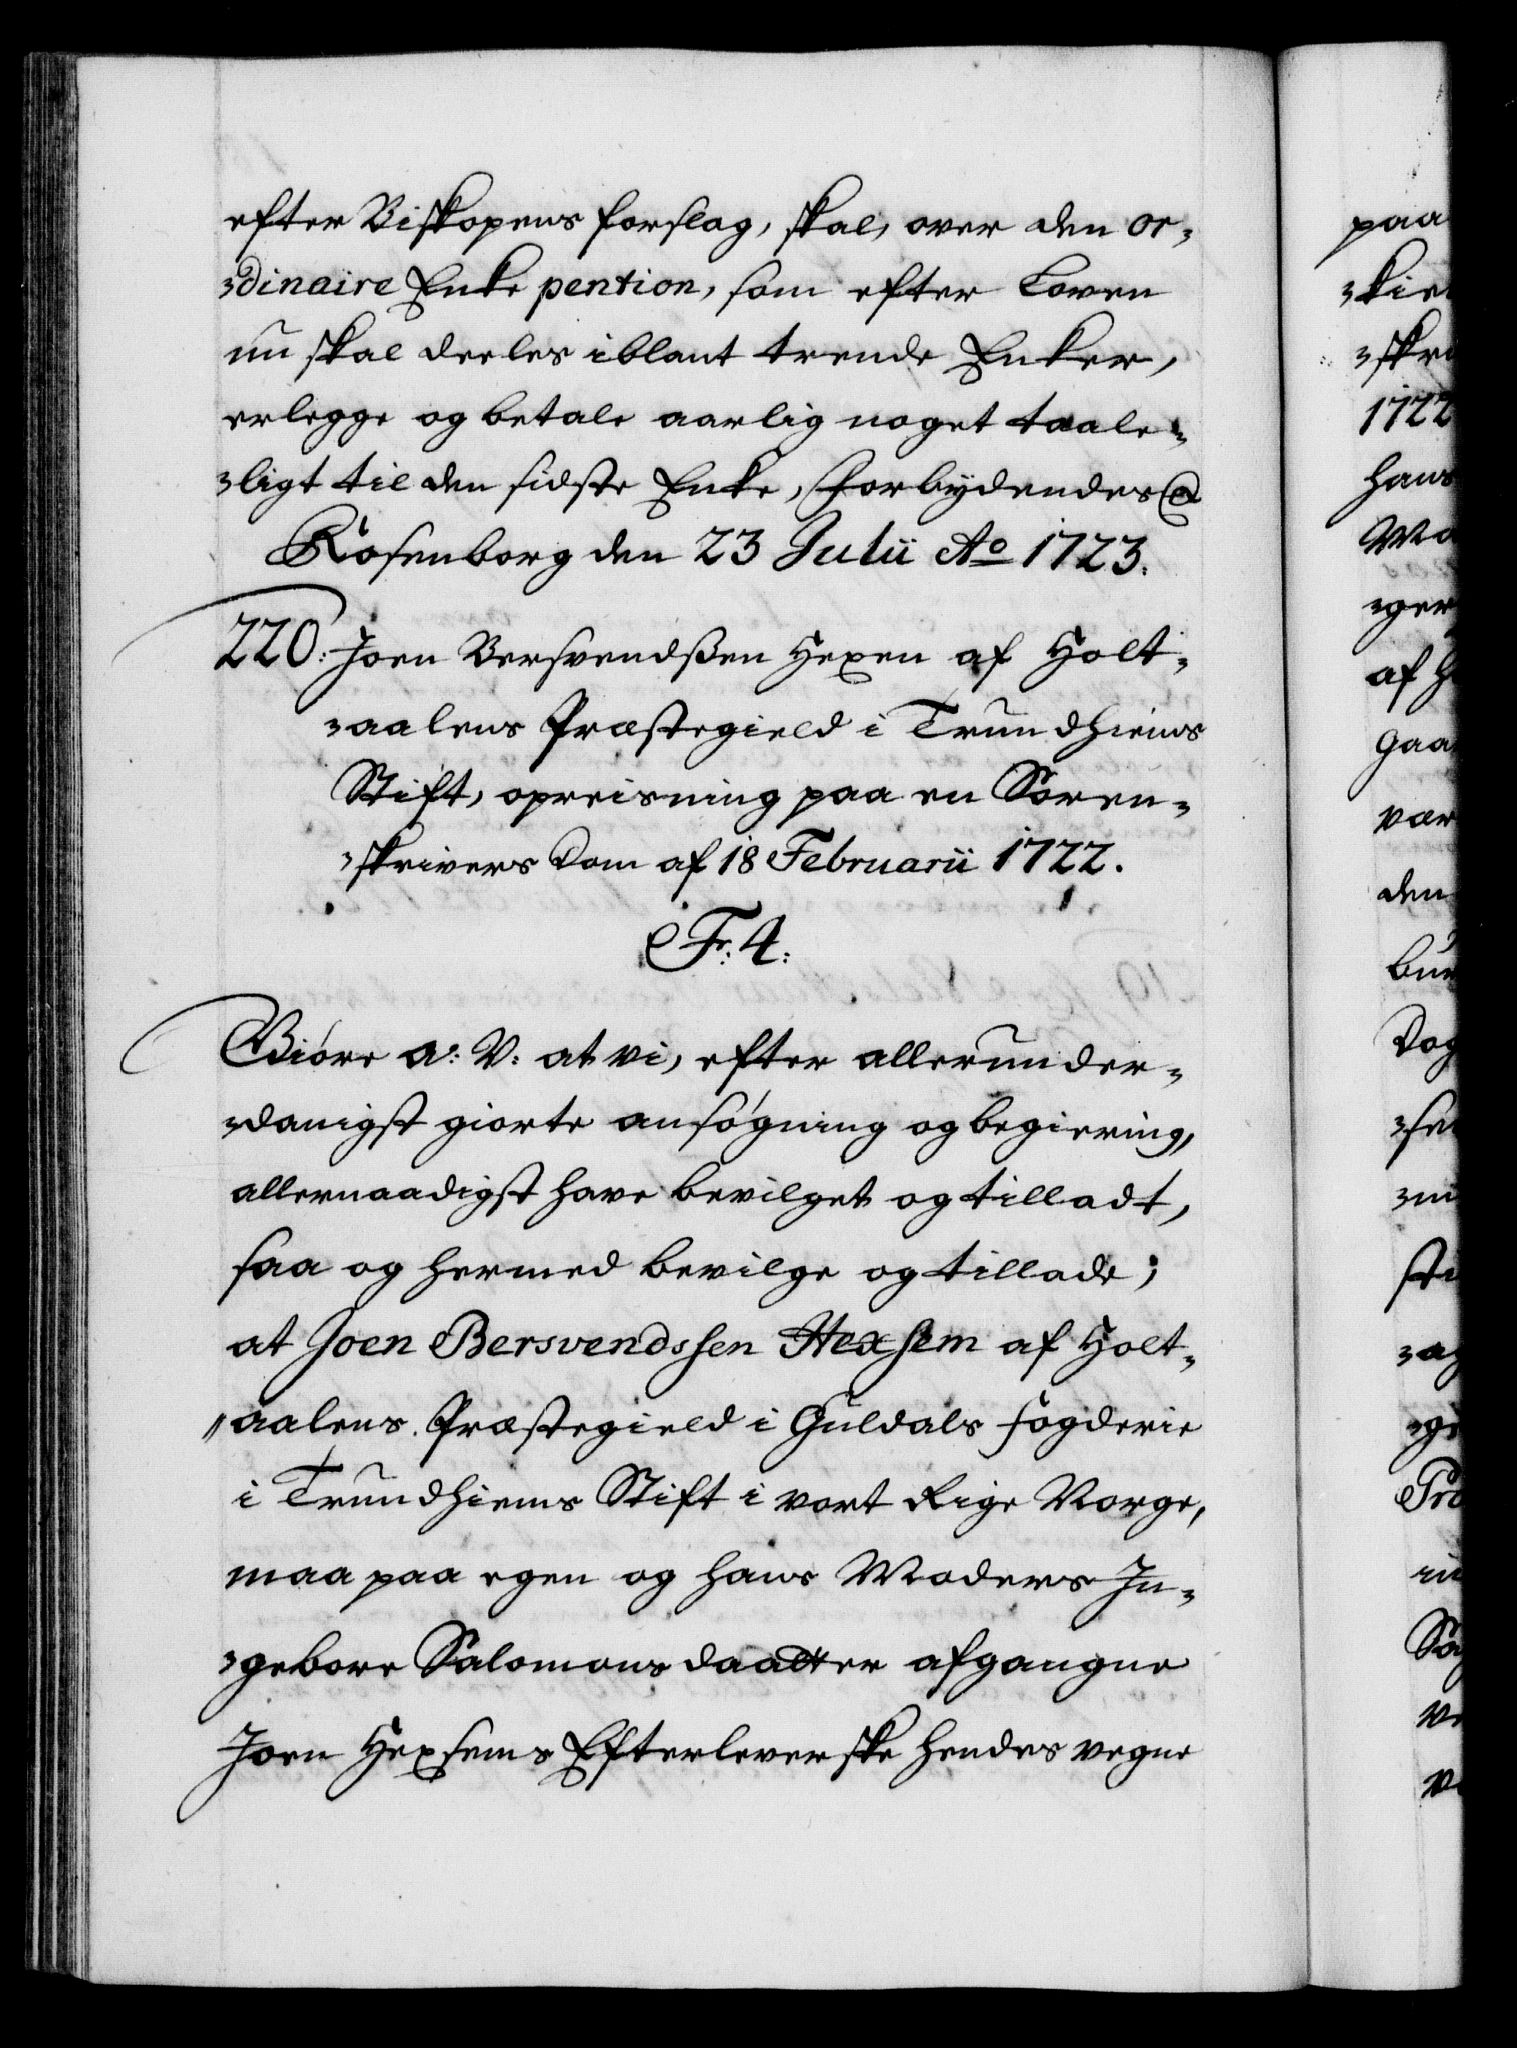 efter Biskopens forslag, skal, over den or-
-dinaire Enke pention, som efter Loven
nu skal deeles iblant trende Enker,
erlegge og betale aarlig noget taale-
-ligt til den sidste Enke, Forbydendes
Rosenborg den 23 Julii Ao 1723.
220: Joen Bersvendßen Hexen af Holt-
-aalens Præstegield i Trundhiems
Stift, opreisning paa en Soren-
-skrivers Dom af 18 Februarii 1722.
Fr: 4:
Giøre a: V: at vi, efter allerunder-
-danigst giorte ansøgning og begiering,
allernaadigst have bevilget og tilladt,
saa og hermed bevilge og tillade;
at Joen Bersvendssen Hexsem af Holt-
-aalens Præstegield i Guldals fogderie
i Trundhiems Stift i vort Rige Norge,
maa paa egen og hans Moders In-
-gebore Salomons daatter afgangne
Joen Hexsems Efterleverske hendes vegne
paa
1722
hans
af
den